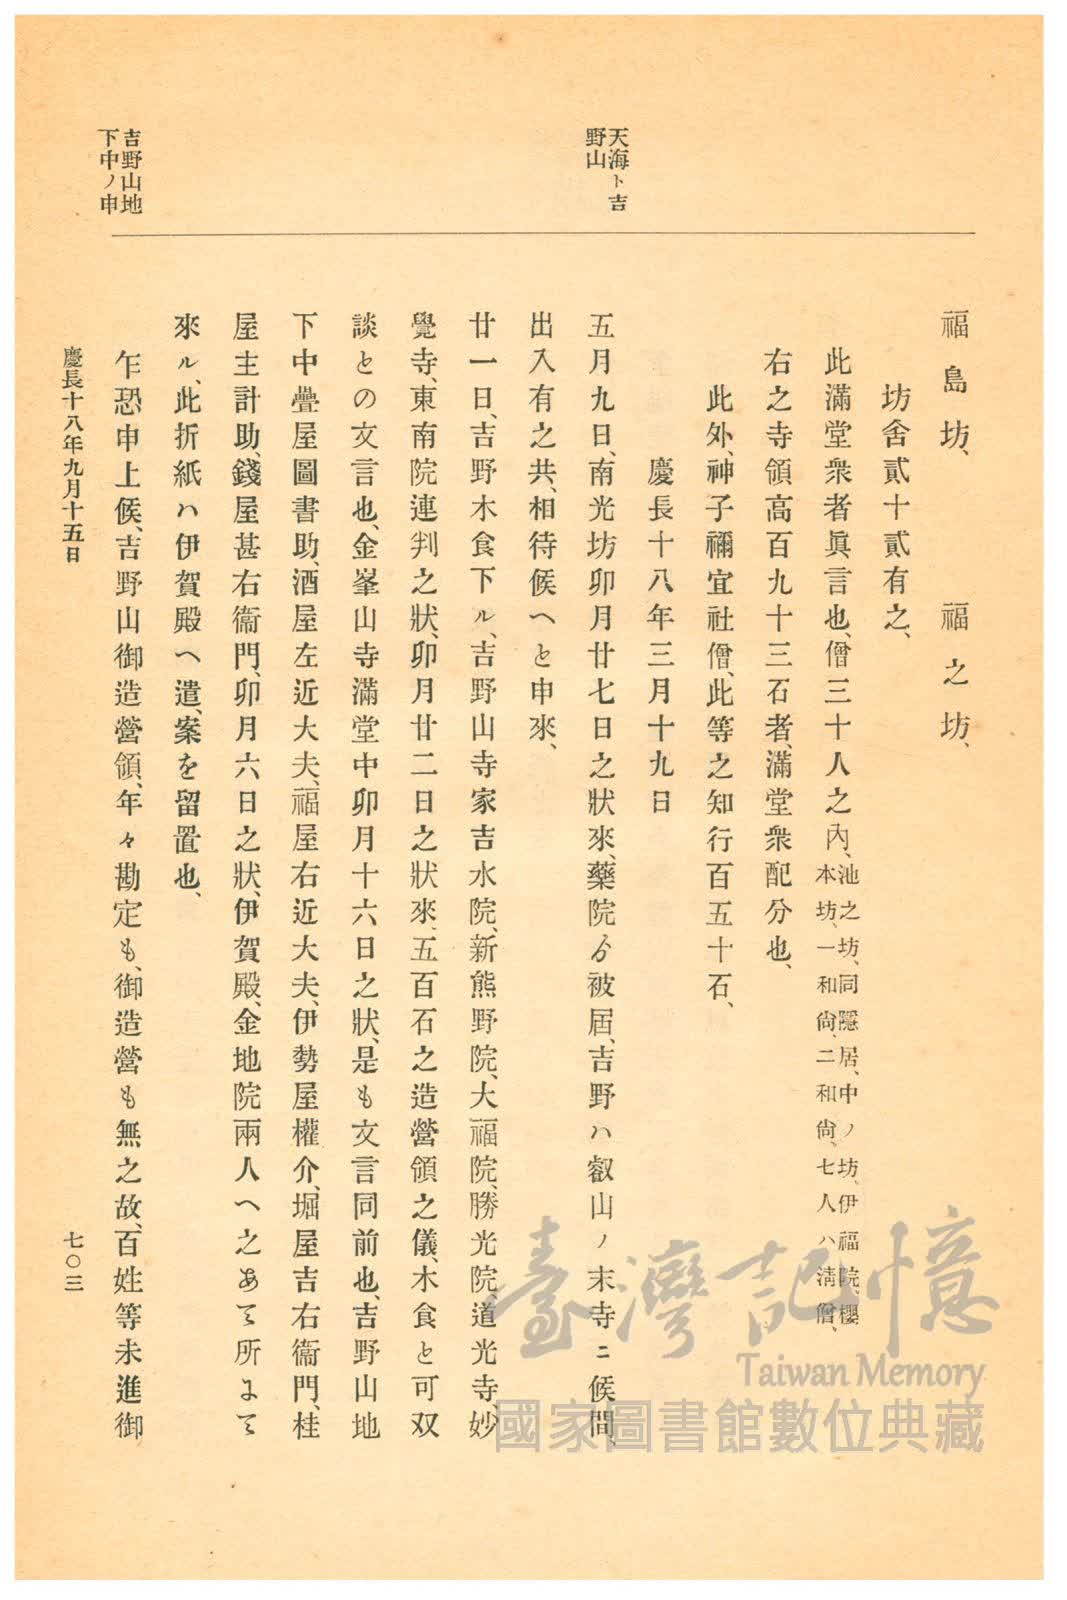 天海ト吉
野山
吉野山地
下中ノ申
福島坊、　福之坊、
坊舍貳十貳有之、
此滿堂衆者眞言也、僧三十人之內、池之坊、同隱居、中ノ坊、伊福院、櫻
本坊、一和尙、二和尙、七人ハ淸僧、
右之寺領高百九十三石者、滿堂衆配分也、
此外、神子禰宜社僧、此等之知行百五十石、
慶長十八年三月十九日
五月九日、南光坊卯月廿七日之狀來、藥院ゟ被屆、吉野ハ叡山ノ末寺ニ候間、
出入有之共、相待候へと申來、
廿一日、吉野木食下ル、吉野山寺家吉水院、新熊野院、大福院、勝光院、道光寺、妙
覺寺、東南院連判之狀、卯月廿二日之狀來、五百石之造營領之儀、木食と可双
談との文言也、金峯山寺滿堂中卯月十六日之狀、是も文言同前也、吉野山地
下中疊屋圖書助、酒屋左近大夫、福屋右近大夫、伊勢屋權介、堀屋吉右衞門、桂
屋主計助、錢屋甚右衞門、卯月六日之狀、伊賀殿、金地院兩人へ之あて所にて
來ル、此折紙ハ伊賀殿へ遣、案を留置也、
乍恐申上候、吉野山御造營領、年々勘定も、御造營も無之故、百姓等未進御
慶長十八年九月十五日
七〇三
臺灣記憶
Taiwan Memory
國家圖書館數位典藏